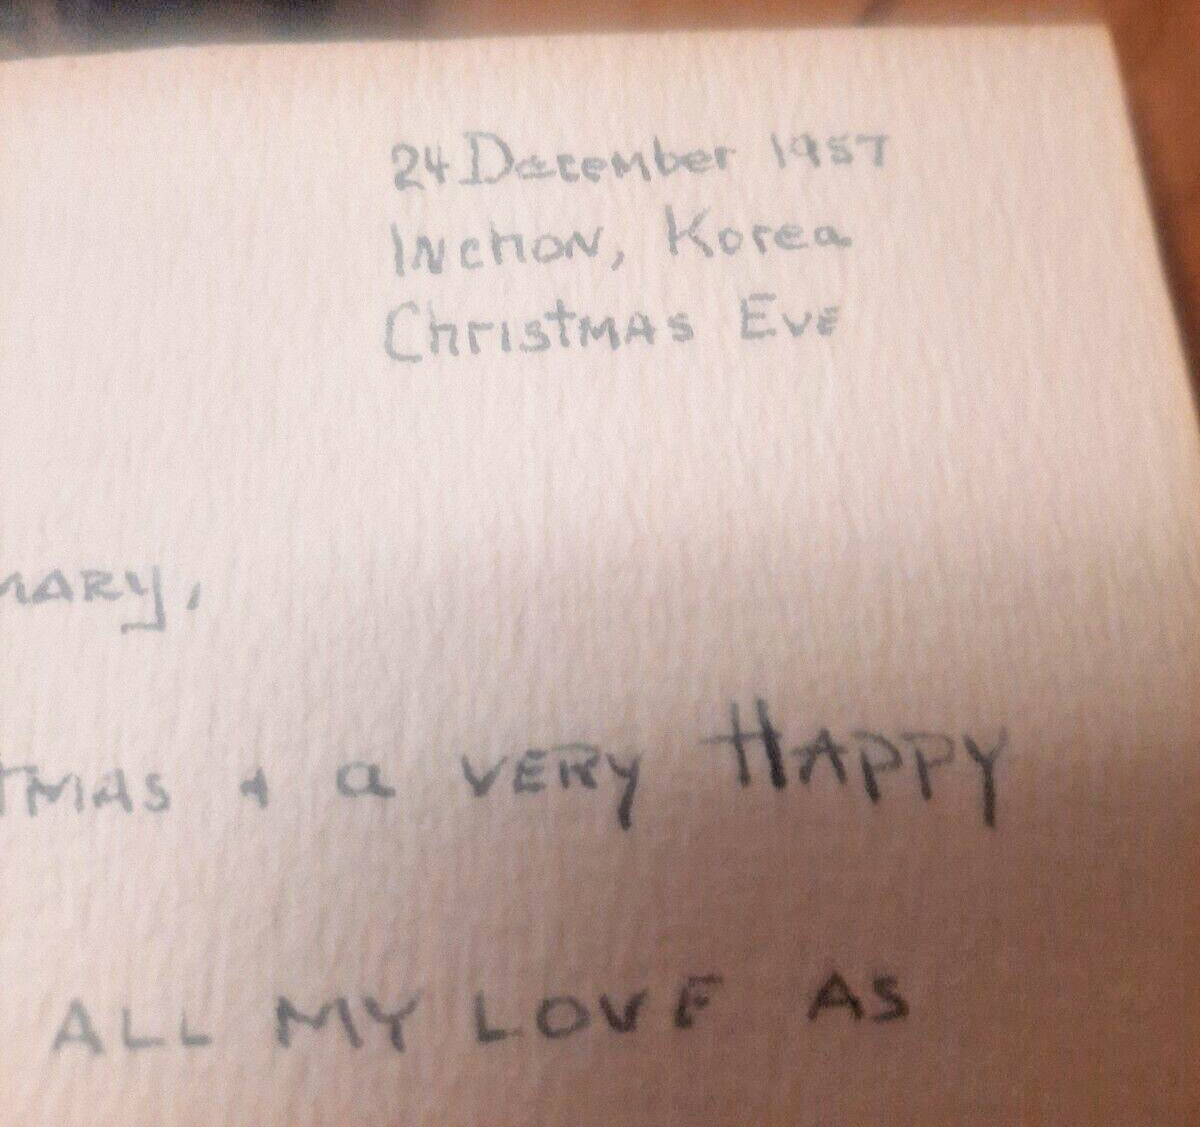 24 December 1957
Inchon, Korea
Christmas Eve
MARY,
TMAS & a VERY HAPPY
ALL MY LOVE AS